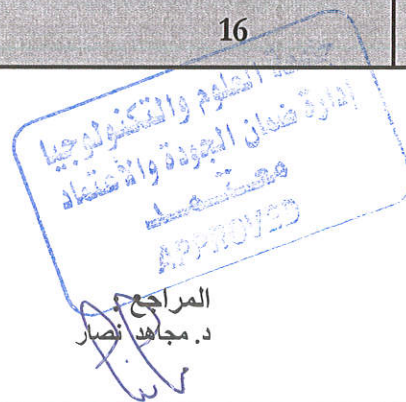 16
العلوم والتكنولوجيا
إدارة ضمان الجودة والاعتماد
معتمد
APPROVED
المراجع :
د. مجاهد نصار